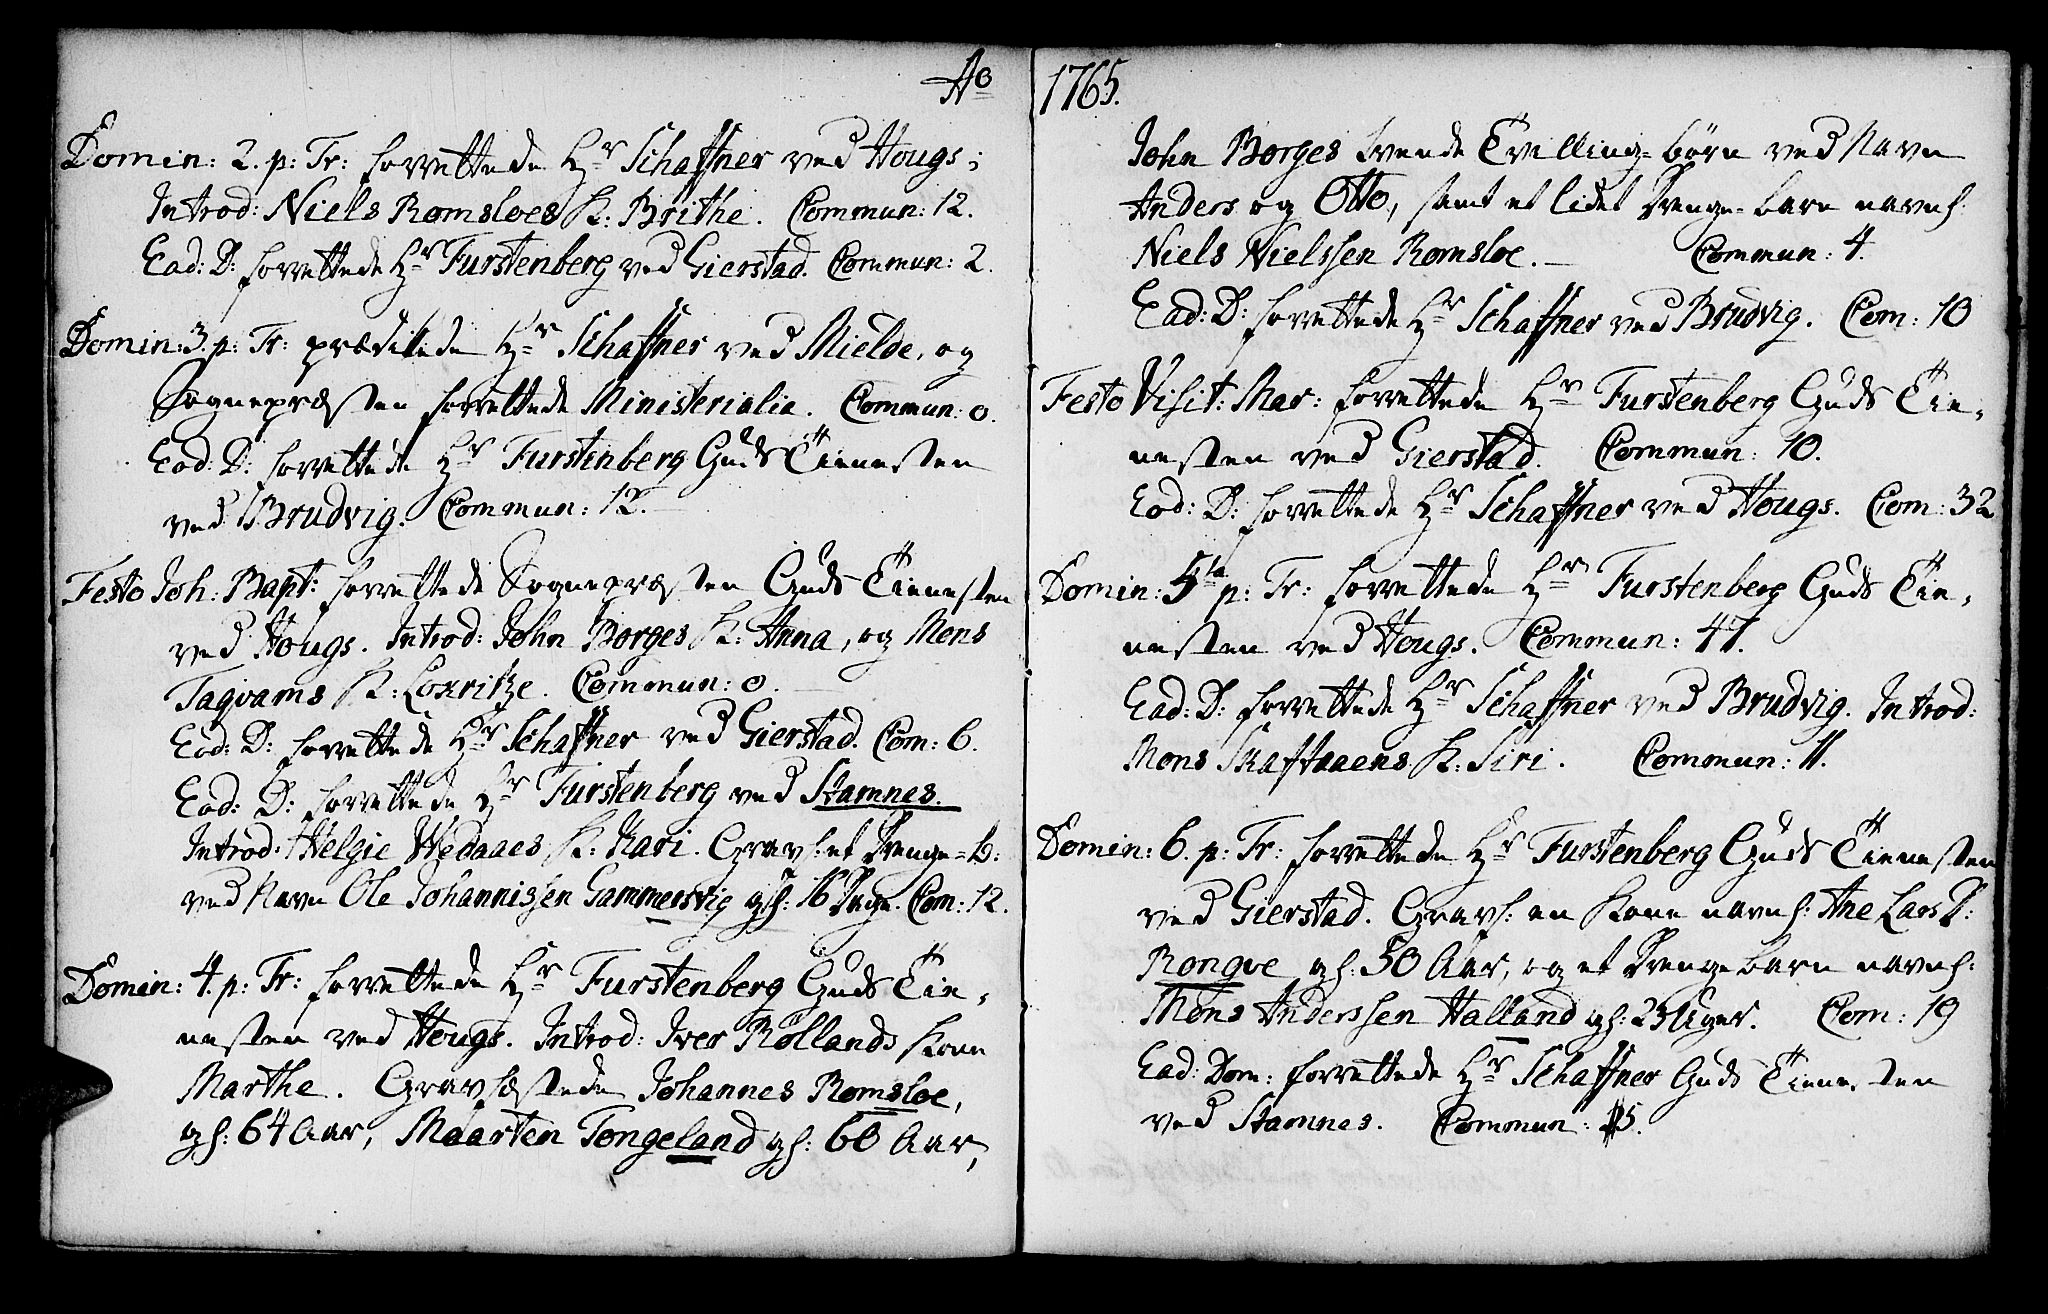 Ao
Domin: 2. p: Tr: forrettede Hr Schaffner ved Hougs;
Introd: Niels Romsloes K: Brithe. Commun: 12.
Ead: D: forrettede Hr Furstenberg ved Gierstad. Commun: 2.
Domin: 3. p: Tr: prædikede Hr Schaffner ved Mielde, og
Sognepræsten forrettede Ministerialia. Commun: 0.
Eod: D: forrettede Hr Furstenberg Guds Tienesten
ved Brudvig. Commun: 12.
Festo Joh: Bapt: forrettede Sognepræsten Guds Tienesten
ved Hougs. Introd: John Borges K: Anna, og Mens
Taqvams K: Commun: 0.
Eod: D: forrettede Hr Schaffner ved Gierstad. Com: 6.
Eod: D: forrettede Hr Furstenberg ved Stamnes.
Introd: Helgie Wedaaes K: Kari. Gravf: et Drenge=b:
ved Navn Ole Johannissen Gammersvig gl: 16 Dage. Com: 12.
Domin: 4. p: Tr: forrettede Hr Furstenberg Guds Tie,
nesten ved Hougs. Introd: Iver Rollands Kone
Marthe. Gravfæstede Johannes Romsloe,
gl: 64 Aar, Maarten Tongeland gl: 60 Aar,
1765.
John Borges tvende Tvilling=børn ved Navn
Anders og Otto, samt et lidet Drenge=barn navnl:
Niels Nielssen Romsloe. Commun: 4.
Ead: D: forrettede Hr Schaffner ved Brudvig. Com: 10
Festo Visit: Mar: forrettede Hr Furstenberg Guds Tie,
nesten ved Gierstad. Commun: 10.
Eod: D: forrettede Hr Schaffner ved Hougs. Com: 32
Domin: 5ta p: Tr: forrettede Hr Furstenberg Guds Tie,
nesten ved Hougs. Commun: 47.
Ead: D: forrettede Hr Schaffner ved Brudvig. Introd:
Mons Skaftaaens K: Siri. Commun: 11.
Domin: 6. p: Tr: forrettede Hr Furstenberg Guds Tienesten
ved Gierstad. Gravf: en Kone navnl: Ane Lars D:
Rongve gl: 50 Aar, og et Drengebarn navnl:
Mons Anderssen Halland gl: 23 Uger. Com: 19
Ead: Dom: forrettede Hr Schaffner Guds Tienesten
ved Stamnes. Commun: 15.